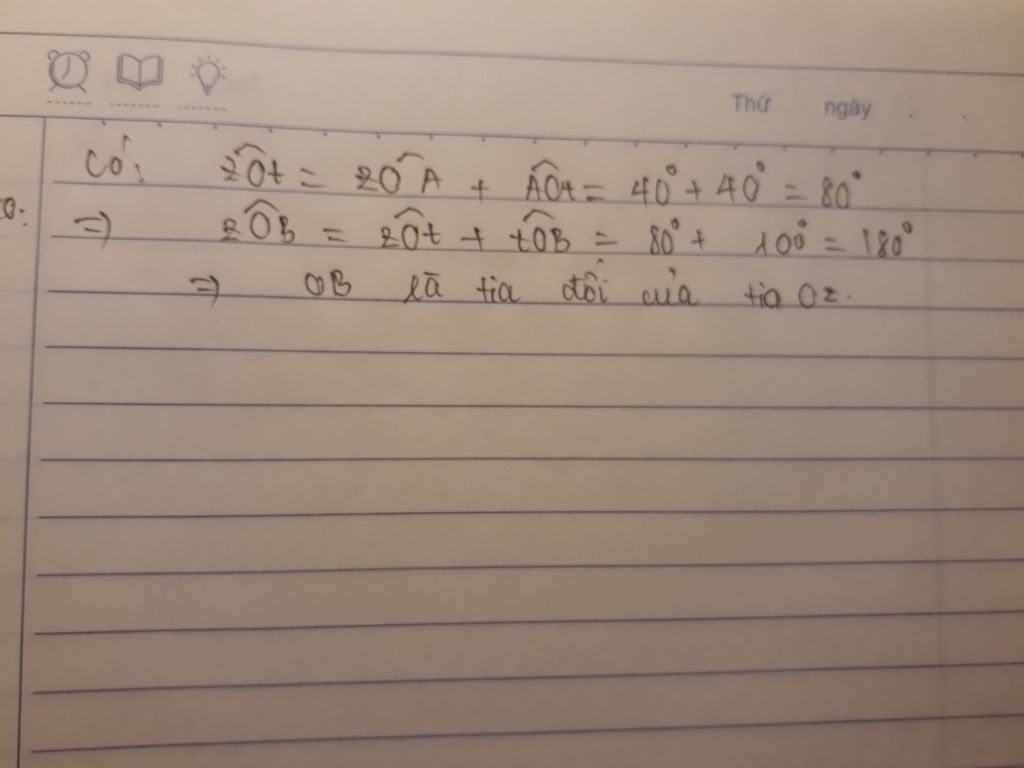 Thứ ngày
Có: zOt = zOA + AOt = 40° + 40° = 80°
O:
=> zOB = zOt + tOB = 80° + 100° = 180°
=> OB là tia đối của tia Oz.